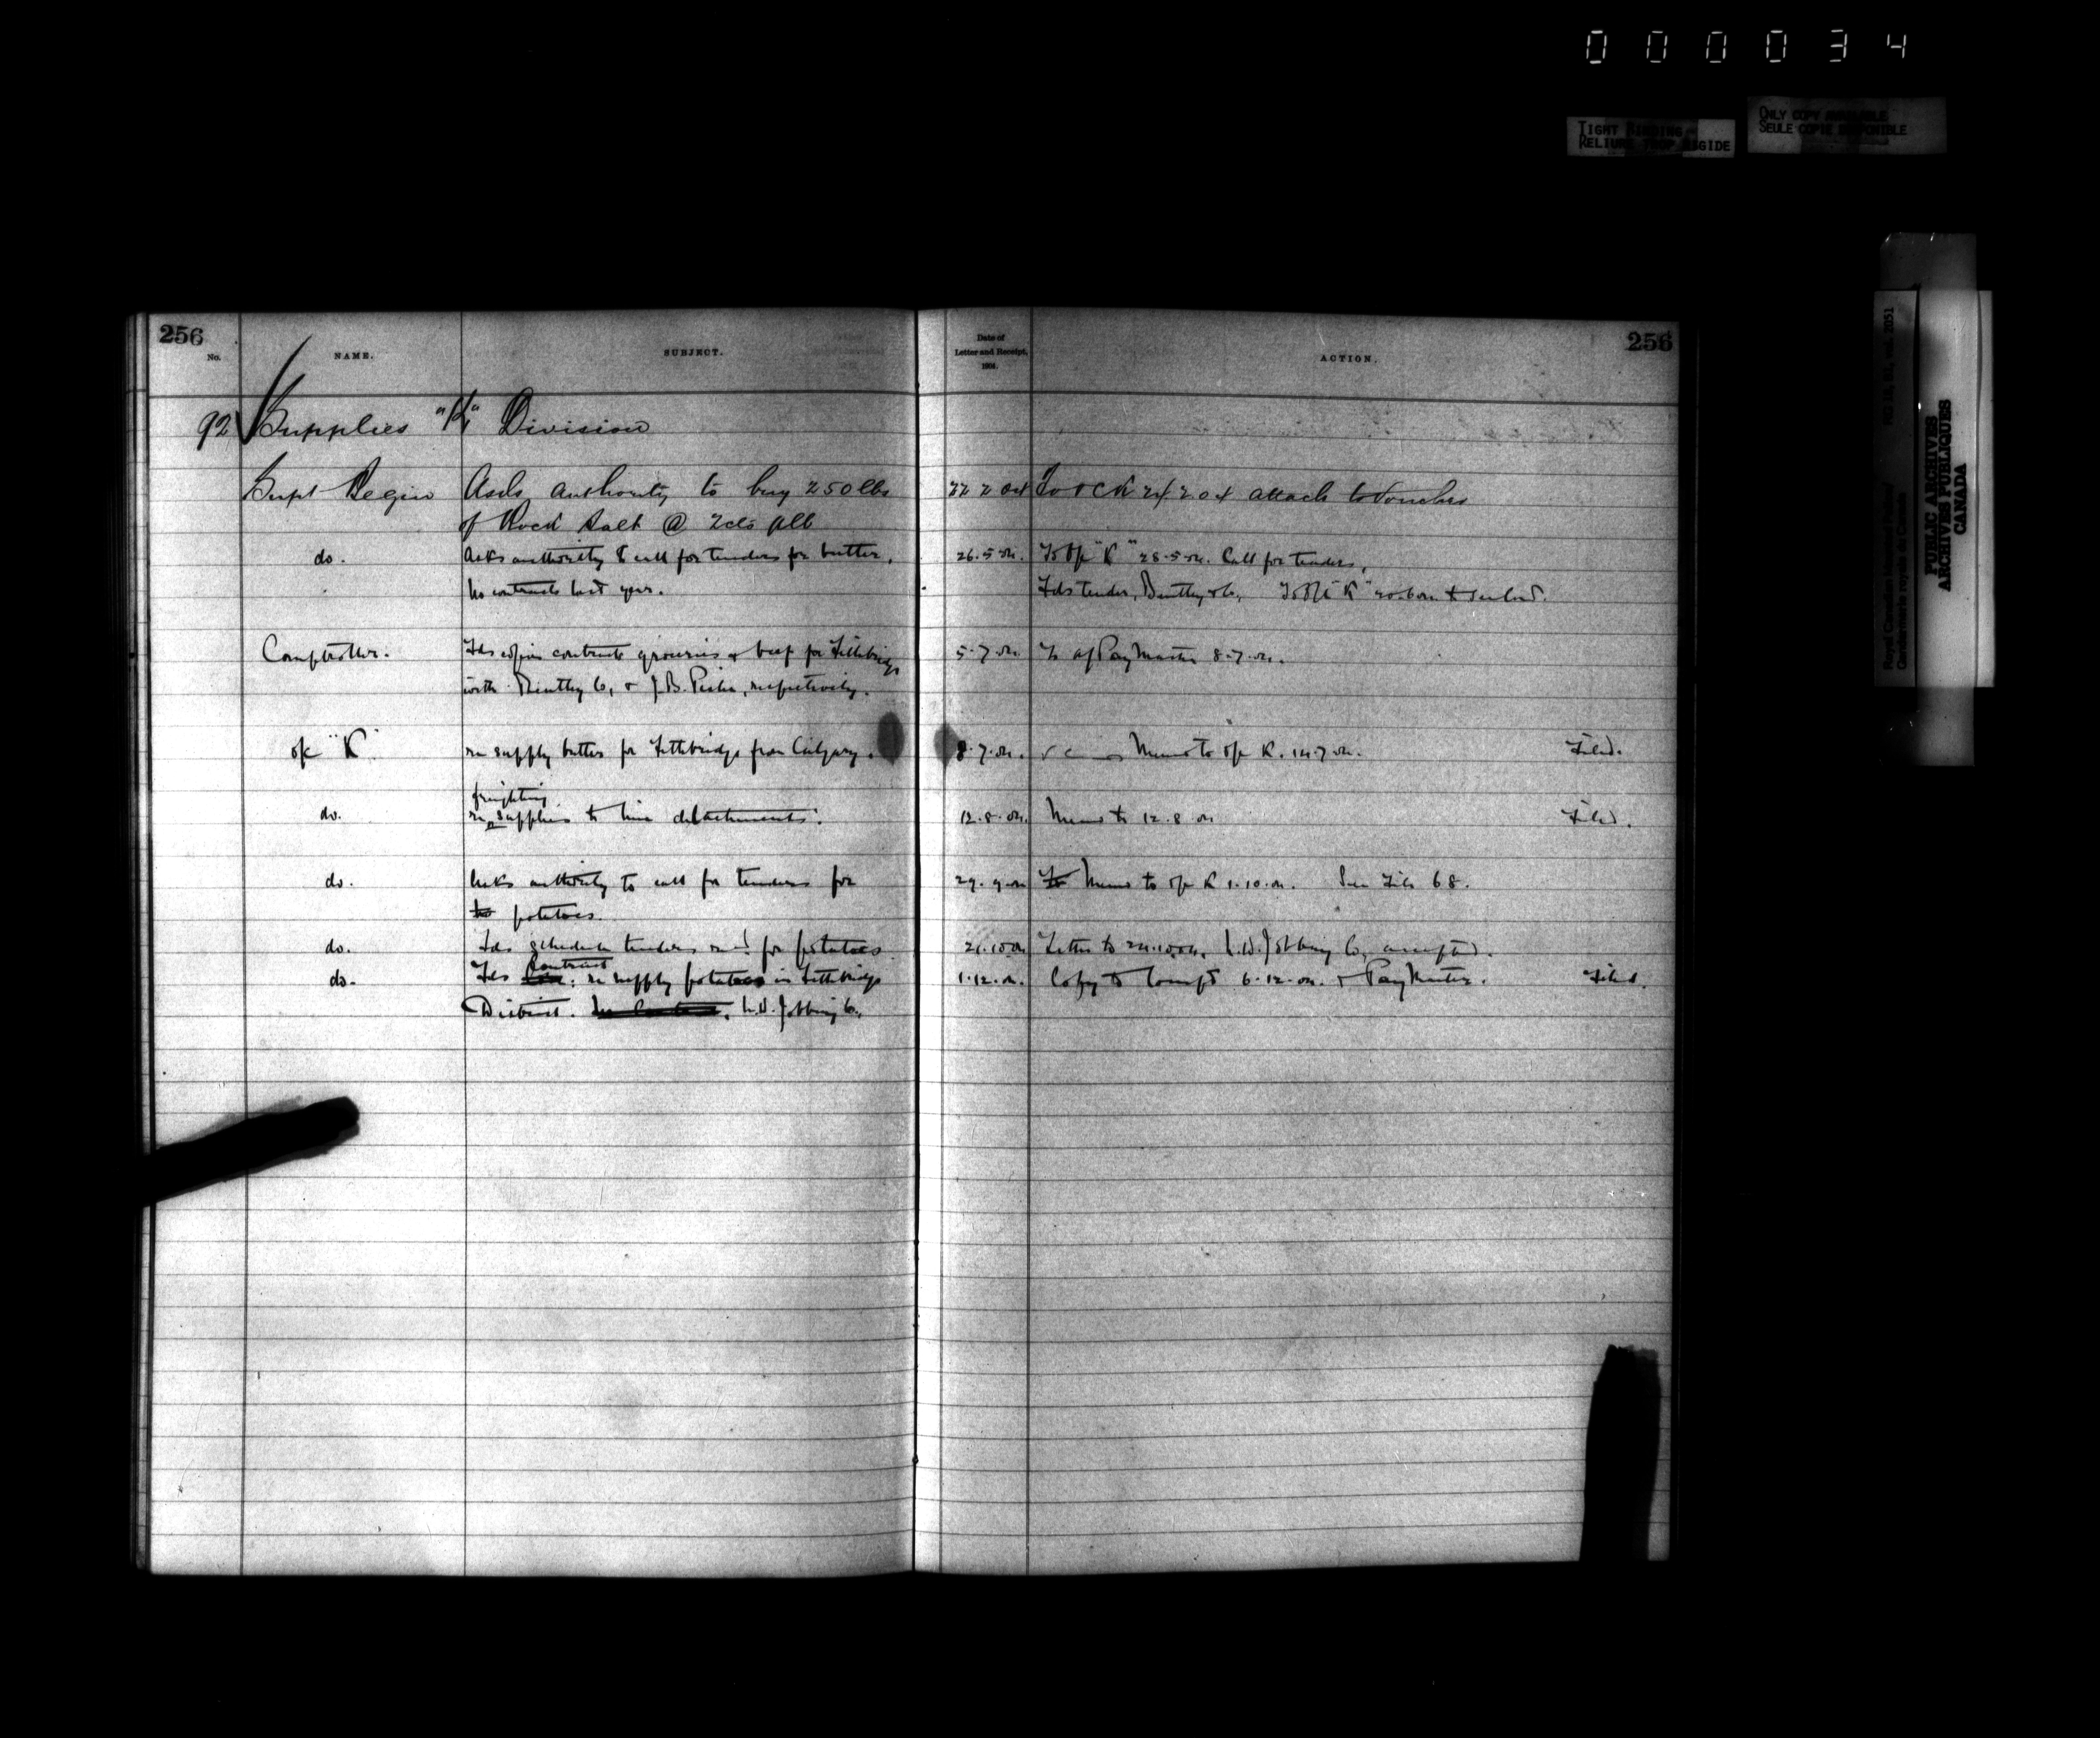 000034
TIGHT BINDING
RELIURE TROP RIGIDE
ONLY COPY AVAILABLE
SEULE COPIE DISPONIBLE
Royal Canadian Mounted Police RG 18, B1, vol. 2051
Gendarmerie royale du Canada
PUBLIC ARCHIVES
ARCHIVES PUBLIQUES
CANADA
256 256
No. NAME. SUBJECT. Date of Letter and Receipt, 1904. ACTION.
92 Supplies "K" Division
Supt Begin Asks authority to buy 250 lbs 22 2 04 To OCK 24 2 04 attach to Voucher
of Rock Salt @ 2cts p lb
do. Asks authority to call for tenders for butter. 26.5.04. To O/c "K" 28.5.04. Call for tenders.
No contracts last year. Fds tender, Bentley & Co, To O/c "K"
Comptroller. Fds copies contracts groceries & beef for Lethbridge 5.7.04. To a/PayMaster 8.7.04.
with Bentley Co, & J.B. respectively.
o/c "K" re supply butter for Lethbridge from Calgary. 8.7.04. Memo to o/c K. 14.7.04. Filed.
freighting
do. re supplies to line detachments. 12.8.04. Memo to 12.8.04 Filed.
do. Asks authority to call for tenders for 29.9.04 Memo to o/c K 1.10.04. See File 68.
potatoes.
do. Fds schedule tenders for potatoes 21.10.04 Letter to 24.10.04. L.W. Jobbing Co, accepted.
Contract
do. Fds re supply potatoes in Lethbridge 1.12.04. Copy to Compt 6.12.04. & PayMaster. Filed.
District. Jobbing Co.